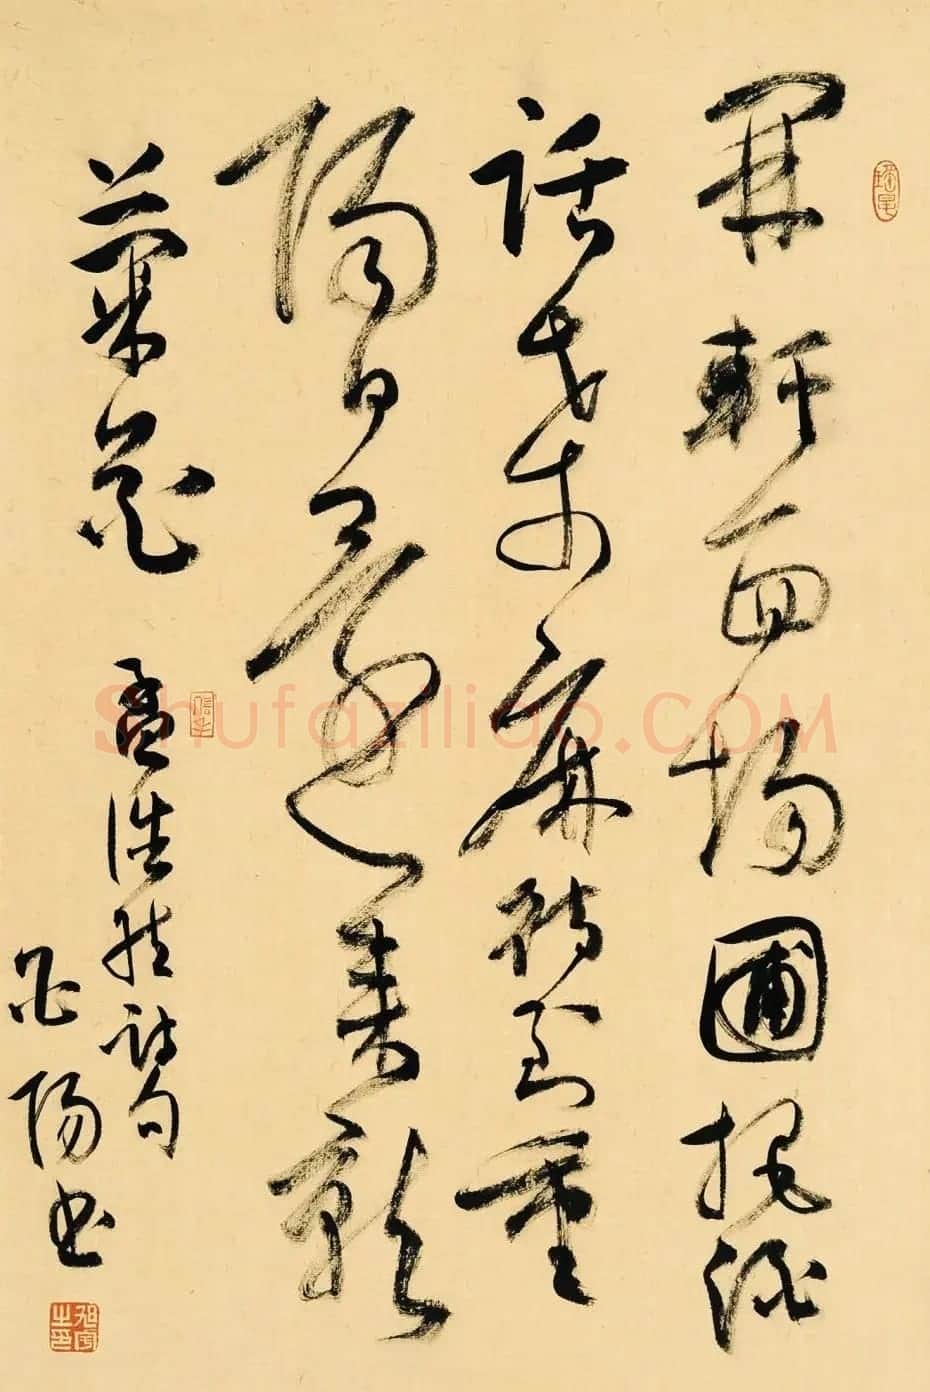 開軒面場圃把酒
話桑麻待到重
陽日還来就
菊花
孟浩然詩句
陽书
旭宇之印
Shufaziliao.COM